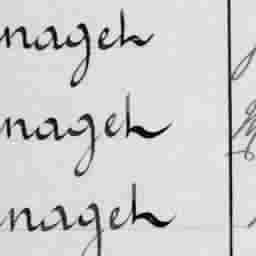 nageh
nageh
nageh